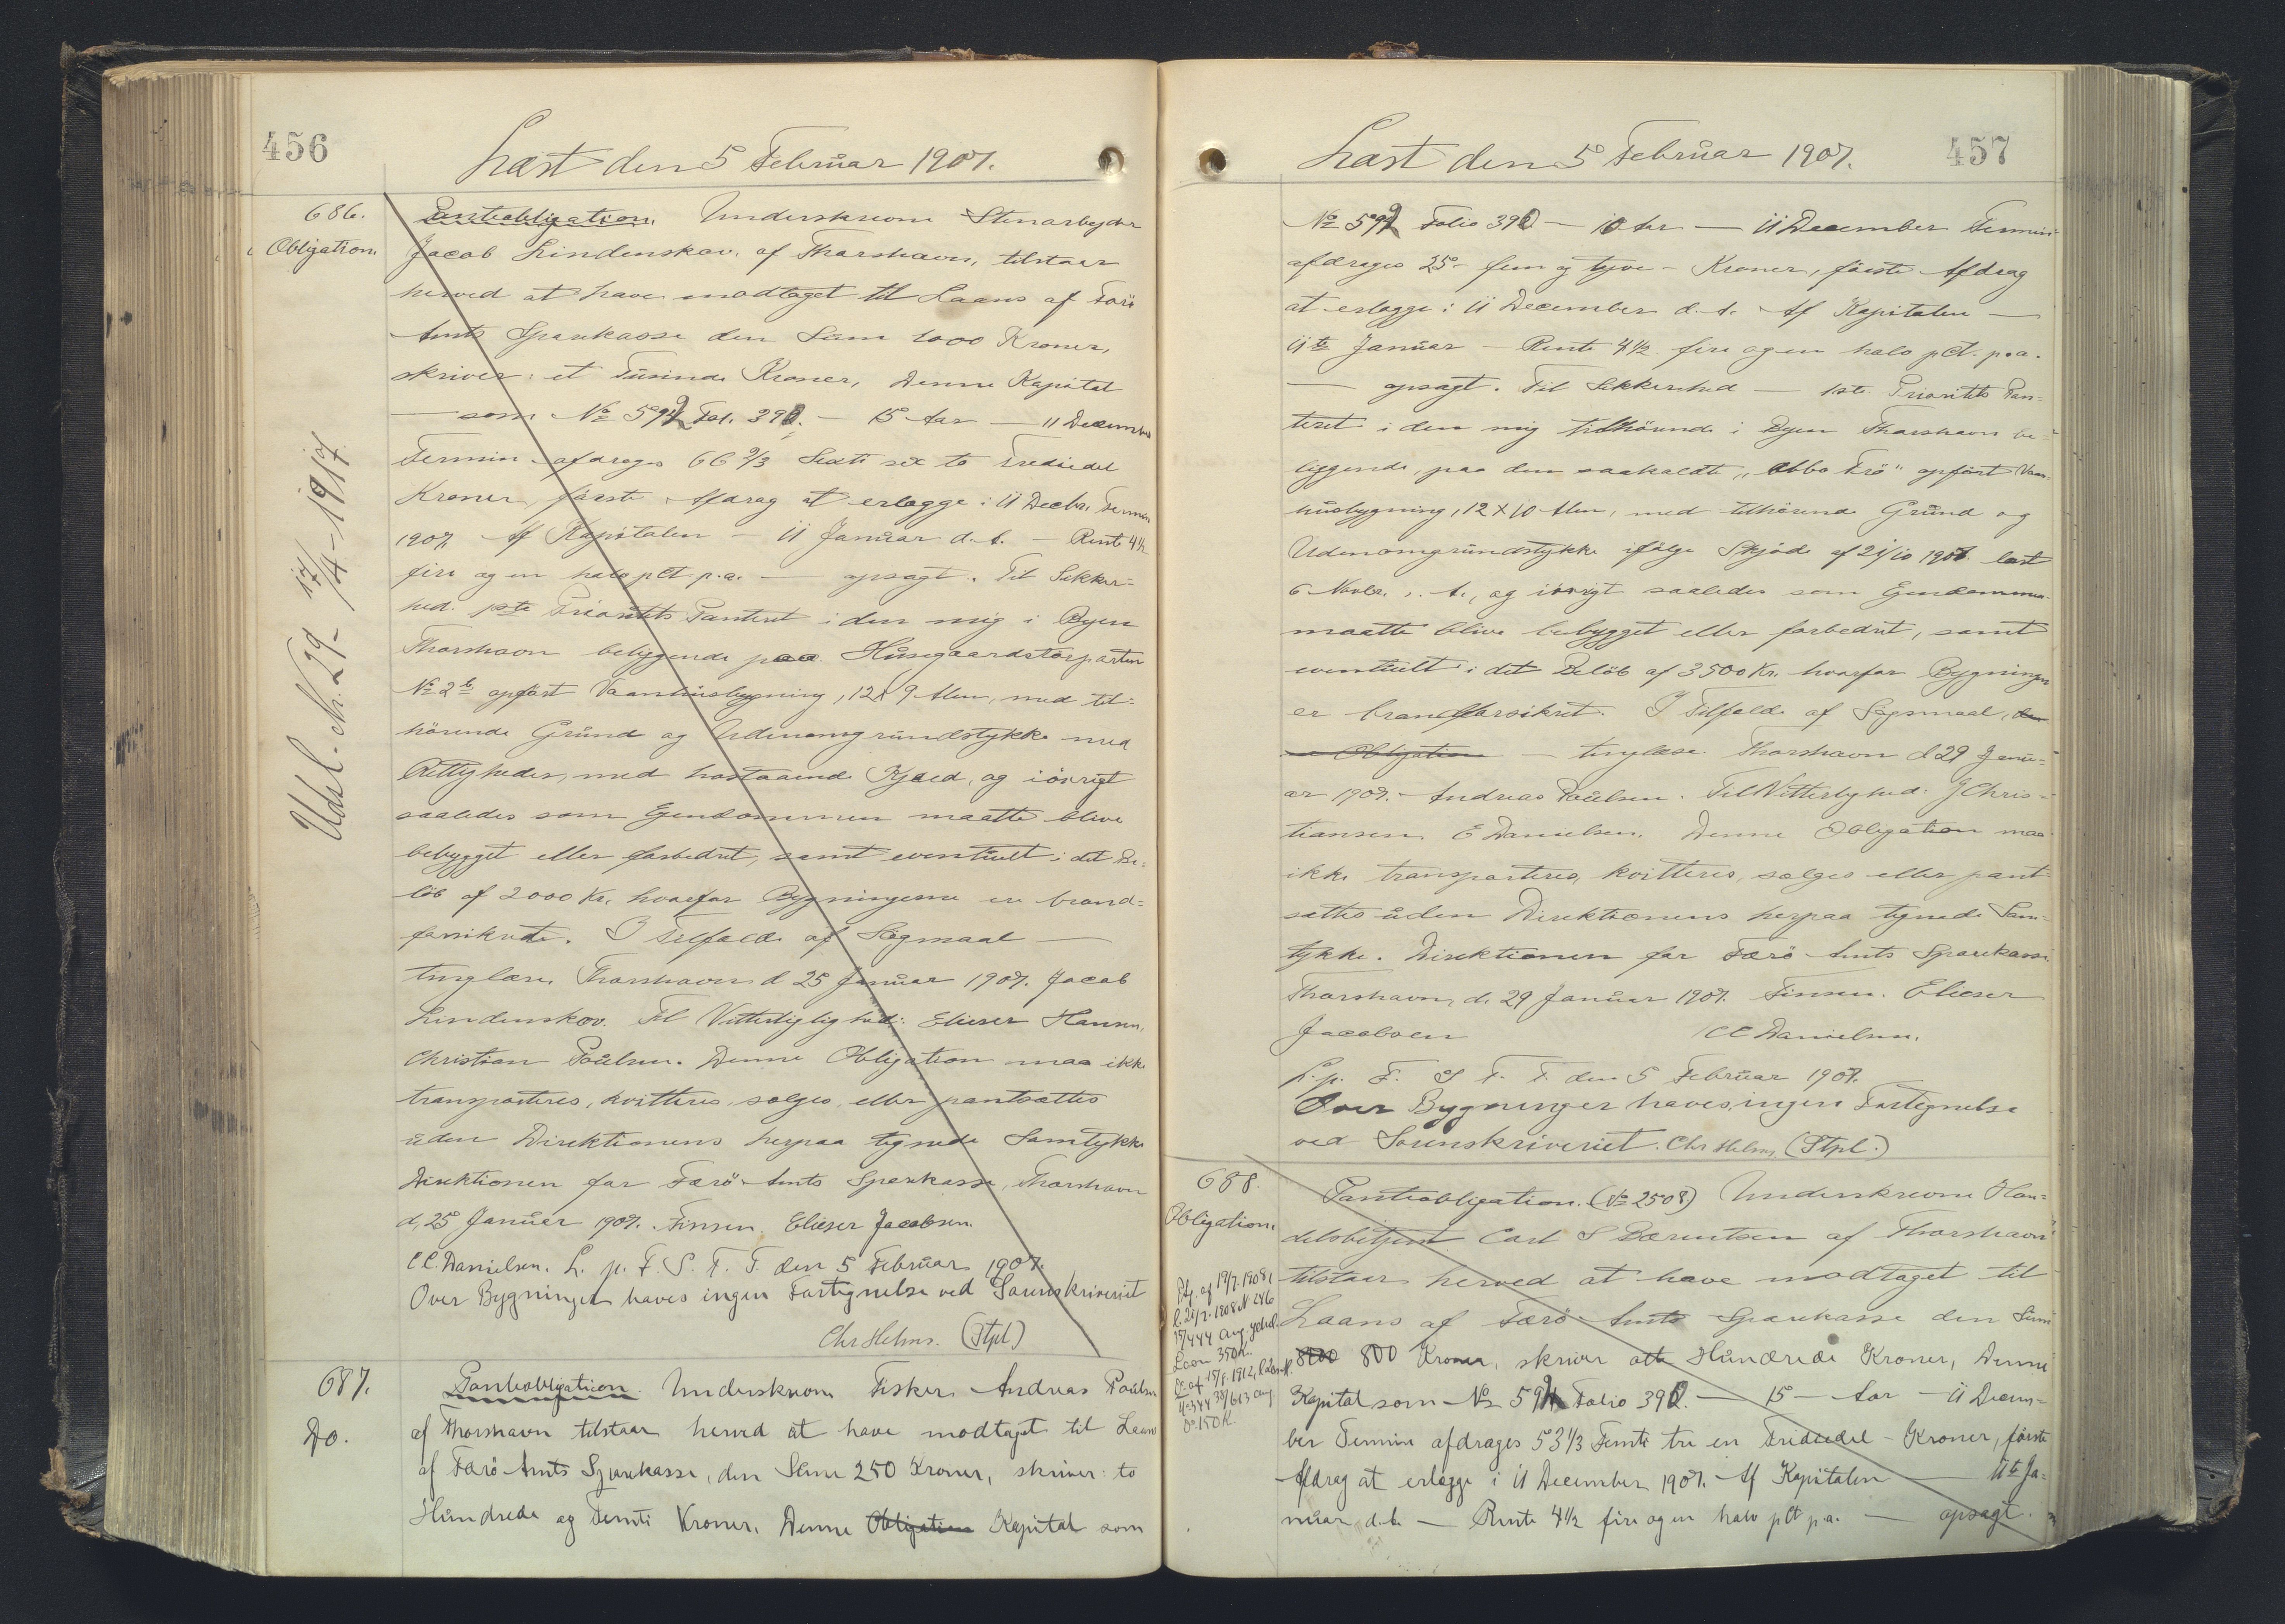 456
Læst den 5 Februar 1907.
686.
Obligation.
Udsl. Nr. 29 - 17/4 - 1917
Panteobligation. Underskrevne Stenarbejder
Jacob Lindenskov, af Thorshavn, tilstaar
herved at have modtaget til Laans af Færö
Amts Sparekasse den Sum 1000 Kroner,
skriver: et Tusinde Kroner, Denne Kapital
— som No Fol. 390. — 15 Aar — 11 December
Termin afdrages 66 2/3 Sexti sex to Trediedel
Kroner, første Afdrag at erlægge i 11 Decbr. Termin
1907. Af Kapitalen — 11 Januar d. A. — Rente 4½
fire og en halv pCt p.a. — opsagt. Til Sikker=
hed 1ste Prioritets Panteret i den mig i Byen
Thorshavn beliggende paa Husegaardstorparten
No 2 b opført Vaanhusbygning, 12 X 9 Alen, med til=
hörende Grund og Udenomgrundstykke med
Rettigheder, med hostaaende Kjæld, og iövrigt
saaledes som Ejendommen maatte blive
bebygget eller forbedret, samt eventuelt i det Be=
löb af 2000 Kr. hvorfor Bygningerne ere brand=
forsikrede. I Tilfælde af Søgsmaal —
tinglæse. Thorshavn d 25 Januar 1907. Jacob
Lindenskov. Til Vitterliglighed: Elieser Hansen,
Christian Poulsen. Denne Obligation maa ikke
transporteres, kvitteres, sælges, eller pantsættes
uden Direktionens herpaa tegnede Samtykke
Direktionen for Færö Amts Sparekasse, Thorshavn
d. 25 Januar 1907. Finsen. Elieser Jacobsen.
C C Danielsen. L. p. F. S. T. T. den 5 Februar 1907.
Over Bygninger haves ingen Fortegnelse ved Sorenskriveriet
Chr Helms. (Stpl.)
687.
Do.
Panteobligation. Underskrevne Fisker Andreas Poulsen
af Thorshavn tilstaar herved at have modtaget til Laans
af Færö Amts Sparekasse, den Sum 250 Kroner, skriver: to
Hundrede og Femti Kroner. Denne Obligation Kapital som
457
Læst den 5 Februar 1907.
No Folio 390 — 10 Aar — 11 December Termin
afdrages 25 — fem og tyve — Kroner, første Afdrag
at erlægge i 11 December d. A. Af Kapitalen —
11te Januar — Rente 4½ fire og en halv pCt. p.a.
— opsagt. Til Sikkerhed — 1ste Prioritets Pan=
teret i den mig tilhörende i Byen Thorshavn be=
liggende, paa den saakaldte „Abbo Trö" opført Vaan=
husbygning, 12 X 10 Alen, med tilhörende Grund og
Udenomgrundstykke ifølge Skjöde af læst
6 Novbr. s. A., og iövrigt saaledes som Ejendommen
maatte blive bebygget eller forbedret, samt
eventuelt i det Belöb af 3500 Kr. hvorfor Bygningen
er brandforsikret. I Tilfælde af Søgsmaal, den
ne Obligation — tinglæse. Thorshavn d 29 Janu=
ar 1907. Andreas Poulsen. Til Vitterlighed: J Chris=
tiansen E Danielsen. Denne Obligation maa
ikke transporteres, kvitteres, sælges eller pant
sættes uden Direktionens herpaa tegnede Sam=
tykke. Direktionen for Færö Amts Sparekasse
Thorshavn, d. 29 Januar 1907. Finsen. Elieser
Jacobsen C C Danielsen.
L. p. F. S T. T. den 5 Februar 1907.
Over Bygninger haves ingen Fortegnelse
ved Sorenskriveriet. Chr Helms, (Stpl.)
688.
Obligation.
Panteobligation. (No 2508) Underskrevne Han=
delsbetjent Carl S Bærentsen af Thorshavn
tilstaar herved at have modtaget til
Laans af Færö Amts Sparekasse den Sum
800 Kroner, skriver otte Hundrede Kroner, Denne
Kapital som No Folio 390. — 15 — Aar — 11 Decem=
ber Termin afdrages 53 1/3 Femti tre en Trediedel - Kroner, første
Afdrag at erlægge i 11 December 1907. Af Kapitalen — 11te Ja=
nuar d. A. — Rente 4½ fire og en halv pCt p.a. — opsagt.
Laan 350 Kr.
Do 150 K.